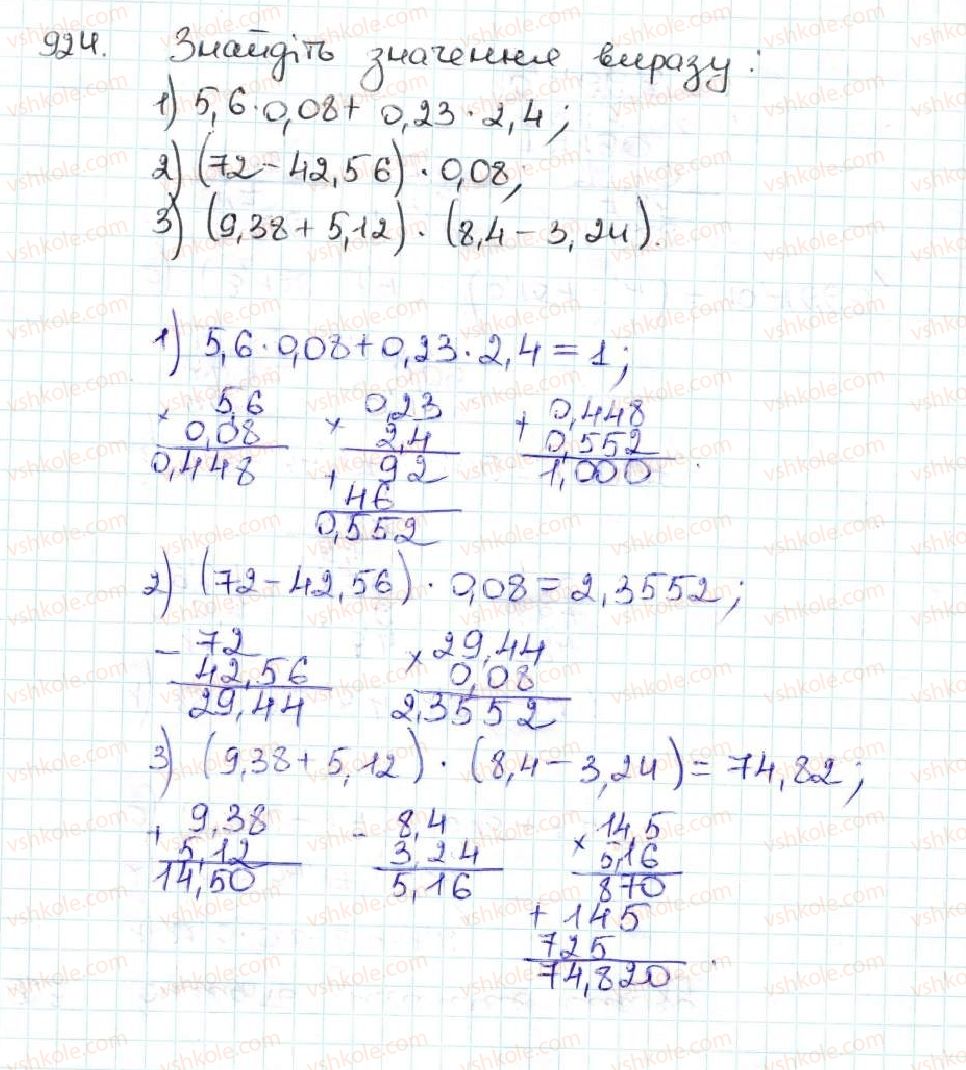 924. Знайдіть значення виразу:
1) 5,6 · 0,08 + 0,23 · 2,4;
2) (72 - 42,56) · 0,08;
3) (9,38 + 5,12) · (8,4 - 3,24).
1) 5,6 · 0,08 + 0,23 · 2,4 = 1;
× 5,6 × 0,23 + 0,448
0,08 2,4 0,552
0,448 + 92 1,000
46
0,552
2) (72 - 42,56) · 0,08 = 2,3552;
- 72 × 29,44
42,56 0,08
29,44 2,3552
3) (9,38 + 5,12) · (8,4 - 3,24) = 74,82;
+ 9,38 - 8,4 × 14,5
5,12 3,24 5,16
14,50 5,16 870
+ 145
725
74,820